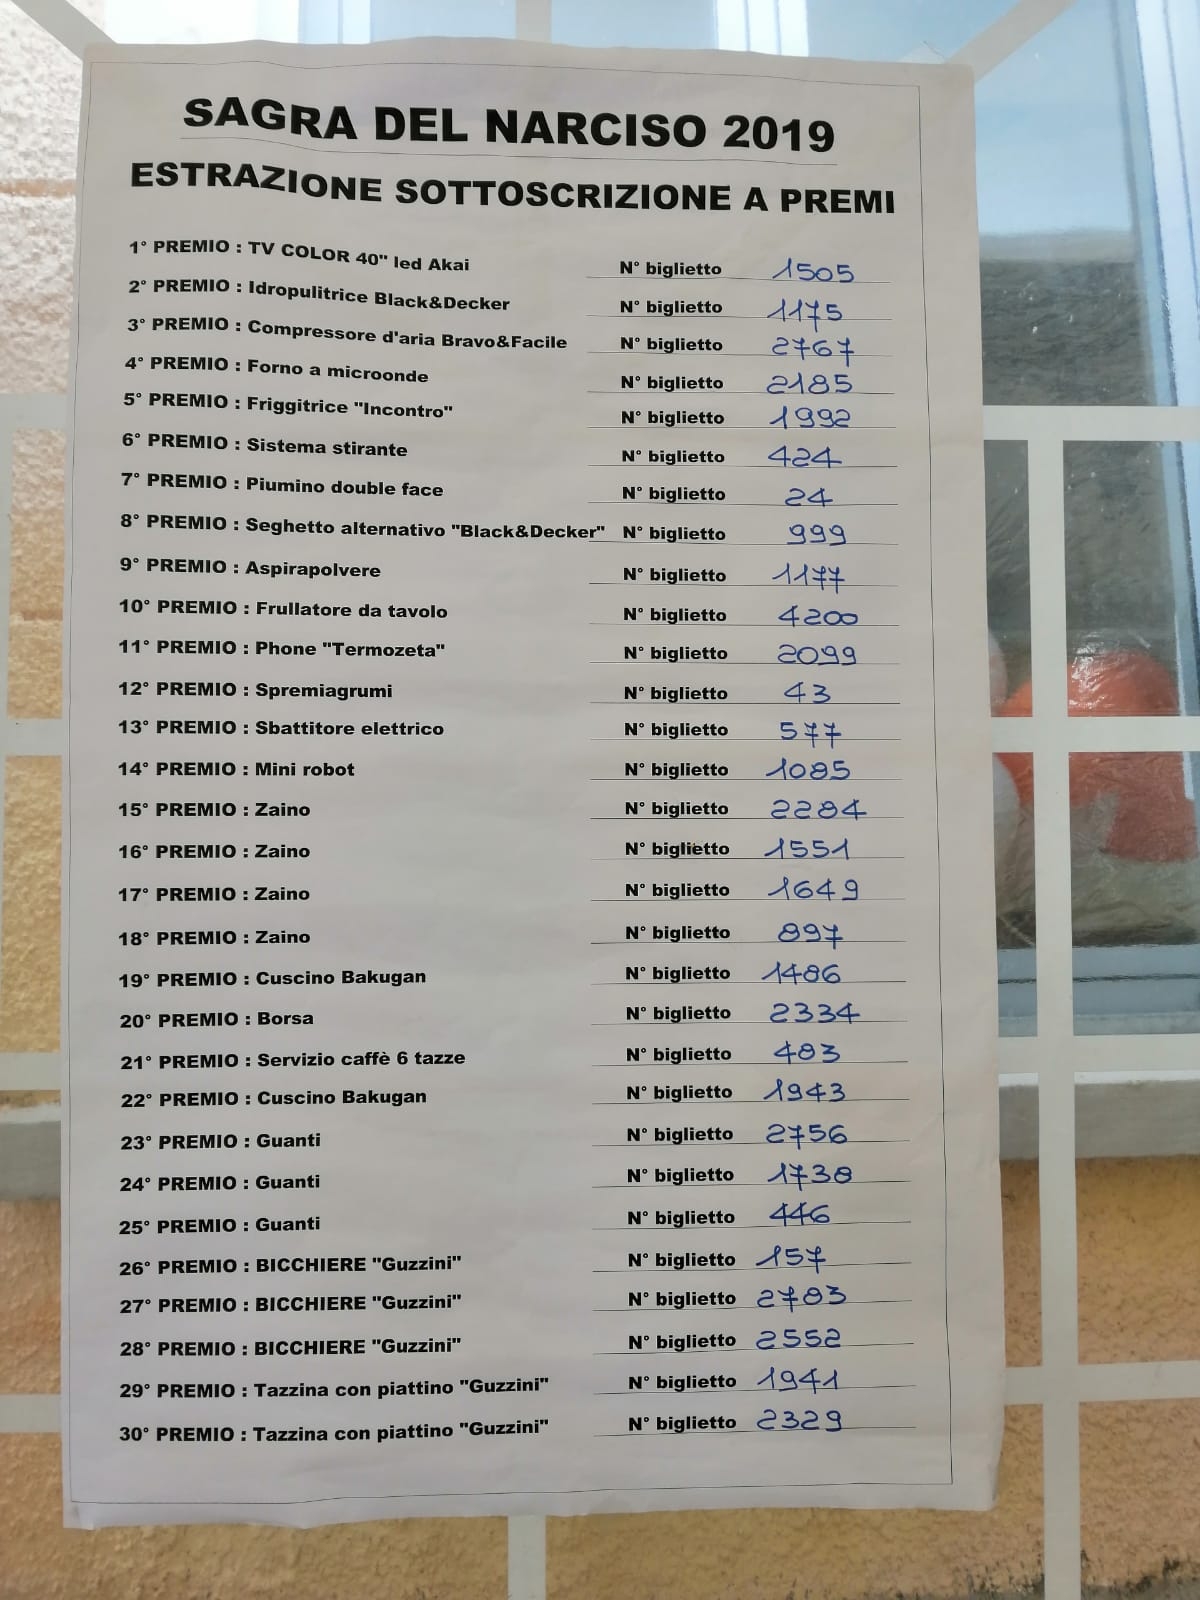 SAGRA DEL NARCISO 2019
ESTRAZIONE SOTTOSCRIZIONE A PREMI
1° PREMIO : TV COLOR 40" led Akai N° biglietto 1505
2° PREMIO : Idropulitrice Black&Decker N° biglietto 1175
3° PREMIO : Compressore d'aria Bravo&Facile N° biglietto 2767
4° PREMIO : Forno a microonde N° biglietto 2185
5° PREMIO : Friggitrice "Incontro" N° biglietto 1992
6° PREMIO : Sistema stirante N° biglietto 424
7° PREMIO : Piumino double face N° biglietto 24
8° PREMIO : Seghetto alternativo "Black&Decker" N° biglietto 999
9° PREMIO : Aspirapolvere N° biglietto 1177
10° PREMIO : Frullatore da tavolo N° biglietto 4200
11° PREMIO : Phone "Termozeta" N° biglietto 2099
12° PREMIO : Spremiagrumi N° biglietto 43
13° PREMIO : Sbattitore elettrico N° biglietto 577
14° PREMIO : Mini robot N° biglietto 1085
15° PREMIO : Zaino N° biglietto 2284
16° PREMIO : Zaino N° biglietto 1551
17° PREMIO : Zaino N° biglietto 1649
18° PREMIO : Zaino N° biglietto 897
19° PREMIO : Cuscino Bakugan N° biglietto 1486
20° PREMIO : Borsa N° biglietto 2334
21° PREMIO : Servizio caffè 6 tazze N° biglietto 483
22° PREMIO : Cuscino Bakugan N° biglietto 1943
23° PREMIO : Guanti N° biglietto 2756
24° PREMIO : Guanti N° biglietto 1738
25° PREMIO : Guanti N° biglietto 446
26° PREMIO : BICCHIERE "Guzzini" N° biglietto 157
27° PREMIO : BICCHIERE "Guzzini" N° biglietto 2783
28° PREMIO : BICCHIERE "Guzzini" N° biglietto 2552
29° PREMIO : Tazzina con piattino "Guzzini" N° biglietto 1941
30° PREMIO : Tazzina con piattino "Guzzini" N° biglietto 2329